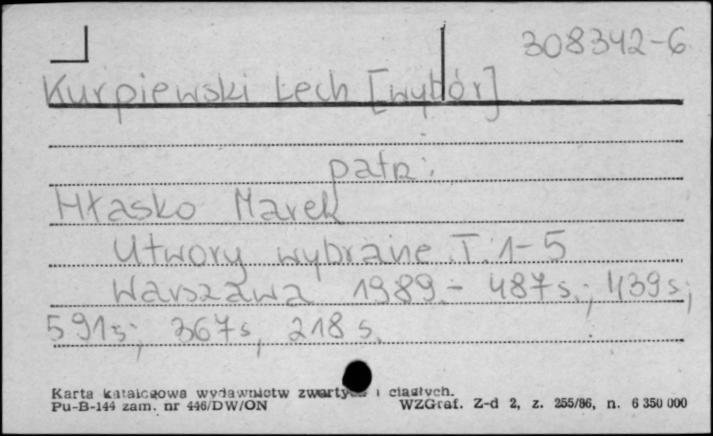 308342-6
Kurpiewski Lech [wybór]
patrz:
Hłasko Marek
Utwory wybrane. T. 1-5
Warszawa 1989.- 487s.; 439s;
591s; 367s, 218 s.
Karta katalogowa wydawnictw zwartych i ciągłych.
Pu-B-144 zam. nr 446/DW/ON WZGraf. Z-d 2, z. 255/86, n. 6 350 000